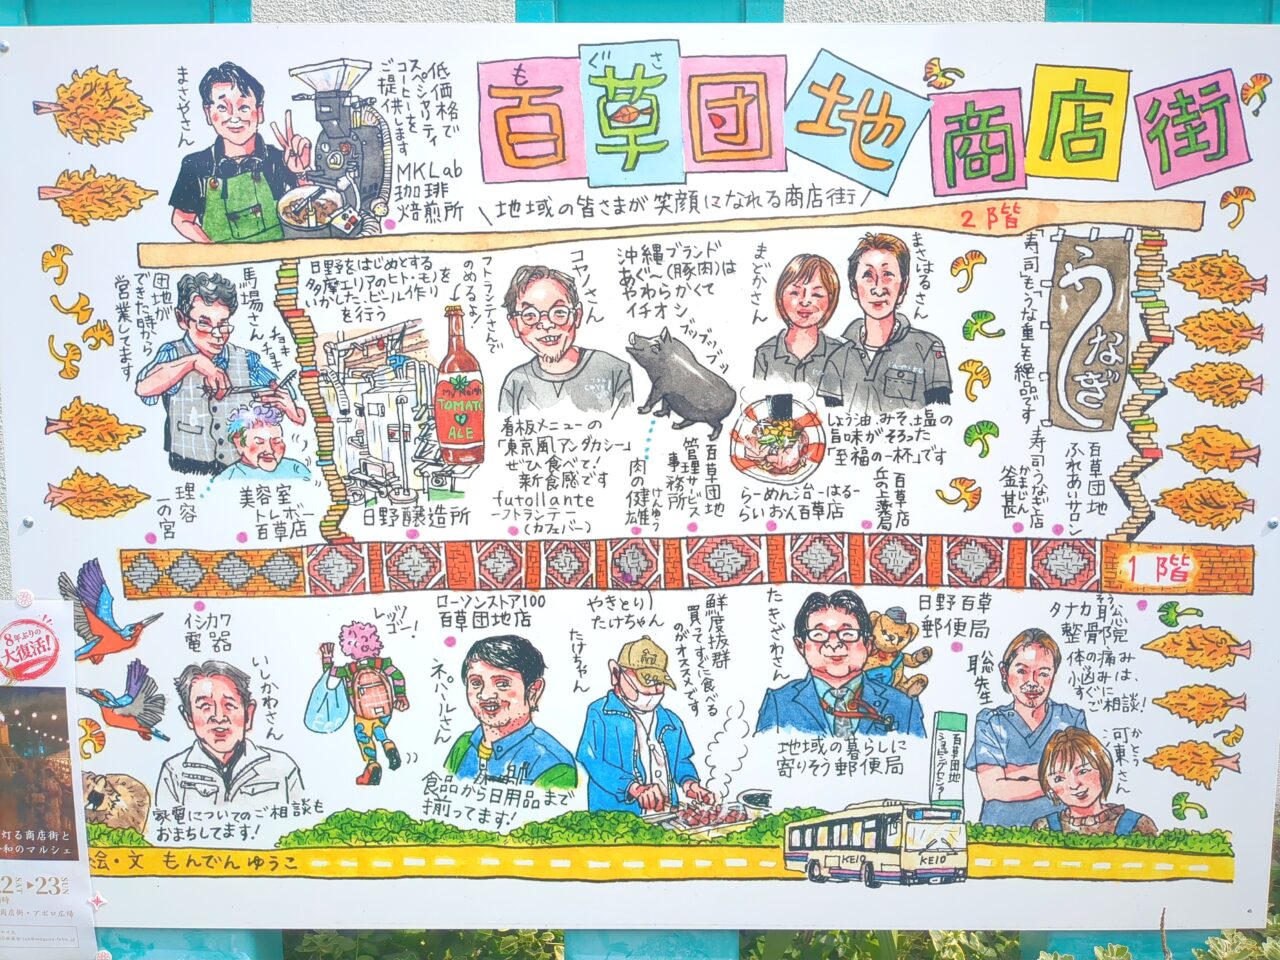 百草団地商店街
もぐさ
＼地域の皆さまが笑顔になれる商店街／
2階
まさやさん
低価格で
スペシャリティ
コーヒーを
ご提供します
MKLab
珈琲
焙煎所
馬場さん
団地が
できた時から
営業してます
チョキ
チョキ
理容
一の宮
美容室
トレボー
百草店
日野をはじめとする
多摩エリアのヒト・モノを
いかした、ビール作り
を行う
フトランテさんで
のめるよ！
My Noma
TOMATO
ALE
日野醸造所
コヤノさん
看板メニューの
「東京風アンダカシー」
ぜひ食べて！
新食感です
futollante
ーフトランテー
(カフェバー)
沖縄ブランド
あぐー(豚肉)は
やわらかくて
イチオシ
ブッブッブッ
肉の健雄
けんゆう
百草団地
管理サービス
事務所
まどかさん
まさはるさん
しょう油、みそ、塩の
旨味がそろった
「至福の一杯」です
らーめん治ーはるー
らいおん百草店
百草店
丘の上薬局
「寿司」も「うな重」も絶品です
うなぎ
寿司うなぎ店
釜甚
かまじん
百草団地
ふれあいサロン
1階
イシカワ
電器
いしかわさん
家電についてのご相談も
おまちしてます！
レッツ
ゴー！
ローソンストア100
百草団地店
ネパールさん
食品から日用品まで
揃ってます！
やきとり
たけちゃん
たけちゃん
鮮度抜群
買ってすぐに食べる
のがオススメです
たきざわさん
日野百草
郵便局
地域の暮らしに
寄りそう郵便局
百草団地
ショッピングセンター
聡先生
タナカ聡
そう
整骨院
体の痛み
小悩みは、
すぐに
ご相談！
河東さん
かとう
KEIO
KEIO
絵・文 もんでんゆうこ
8年ぶりの
大復活！
灯る商店街と
和のマルシェ
2 SAT ▶ 23 SUN
商店街・アポロ広場